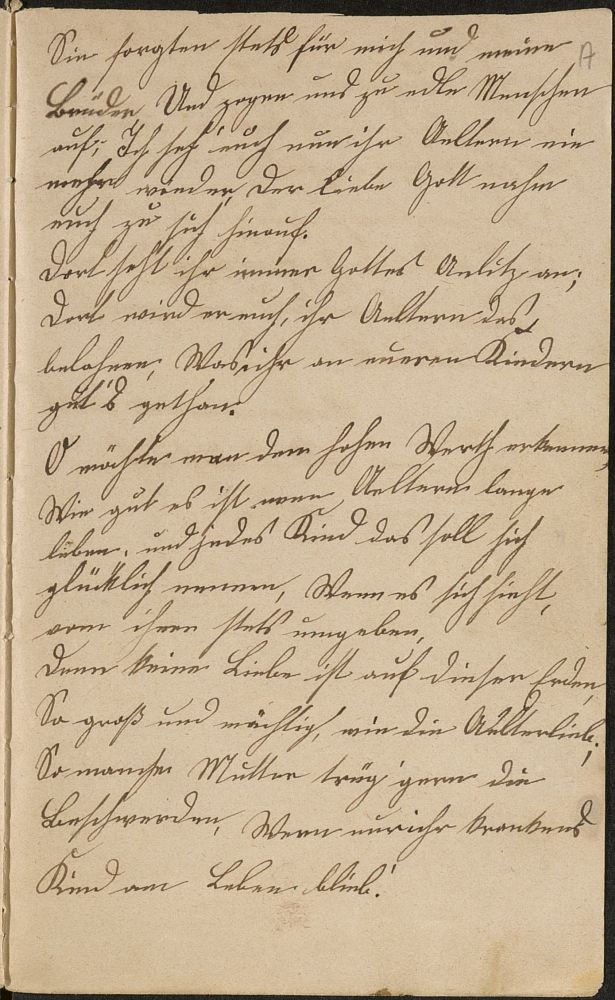 Sie sorgten stets für mich und meine
Brüder, Und zogen uns zu edle Menschen
auf; Ich seh' euch nun ihr Aeltern nie
mehr wieder, Der liebe Gott nahm
euch zu sich hinauf.
Dort seht ihr immer Gottes Anlitz an;
Dort wird er euch, ihr Aeltern das,
belohnen, Was ihr an eueren Kindern
gut's gethan.
O möchte man den hohen Werth erkennen,
Wie gut es ist wenn Aeltern lange
leben, und jedes Kind das soll sich
glücklich nennen, Wenn es sich sieht,
von ihnen stets umgeben,
Denn keine Liebe ist auf dieser Erden,
So groß und mächtig, wie die Aelternlieb;
So manche Mutter trüg' gern die
Beschwerden, Wenn nur ihr krankes
Kind am Leben blieb!